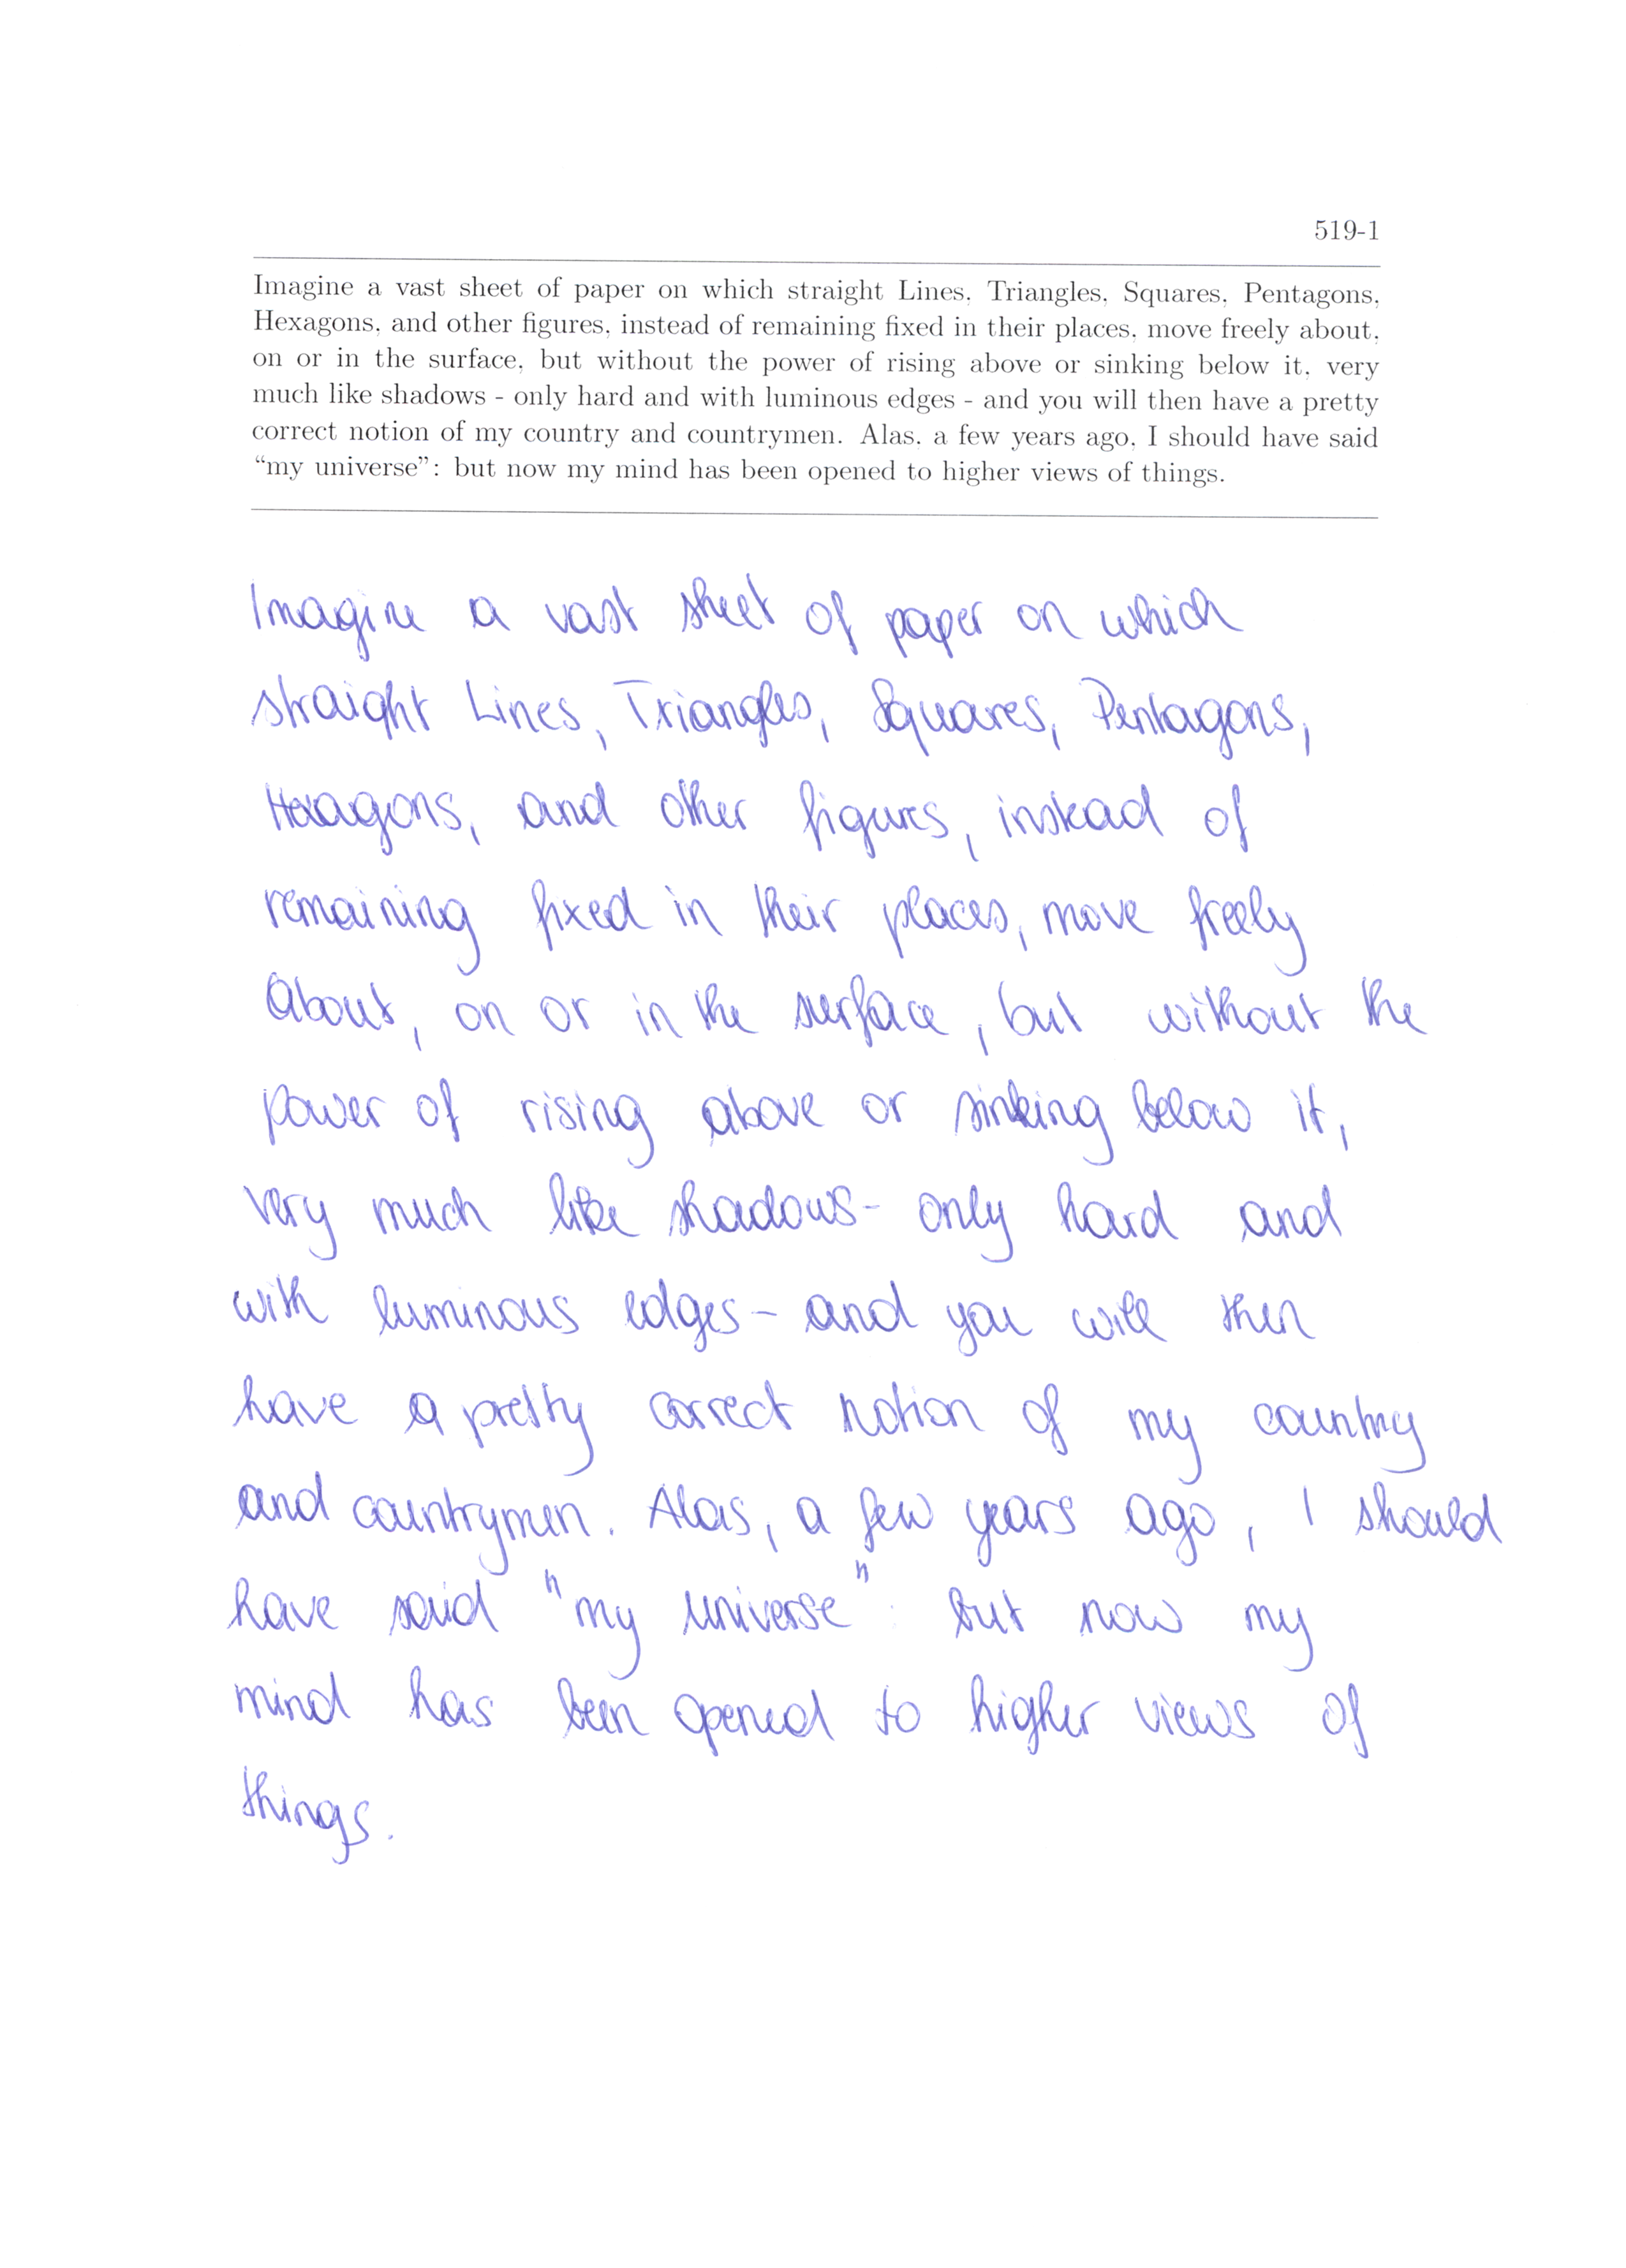 519-1
Imagine a vast sheet of paper on which straight Lines, Triangles, Squares, Pentagons,
Hexagons, and other figures, instead of remaining fixed in their places, move freely about,
on or in the surface, but without the power of rising above or sinking below it, very
much like shadows - only hard and with luminous edges - and you will then have a pretty
correct notion of my country and countrymen. Alas, a few years ago, I should have said
“my universe”: but now my mind has been opened to higher views of things.
Imagine a vast sheet of paper on which
straight Lines, Triangles, Squares, Pentagons,
Hexagons, and other figures, instead of
remaining fixed in their places, move freely
about, on or in the surface, but without the
power of rising above or sinking below it,
very much like shadows - only hard and
with luminous edges - and you will then
have a pretty correct notion of my country
and countrymen. Alas, a few years ago, I should
have said "my universe": but now my
mind has been opened to higher views of
things.